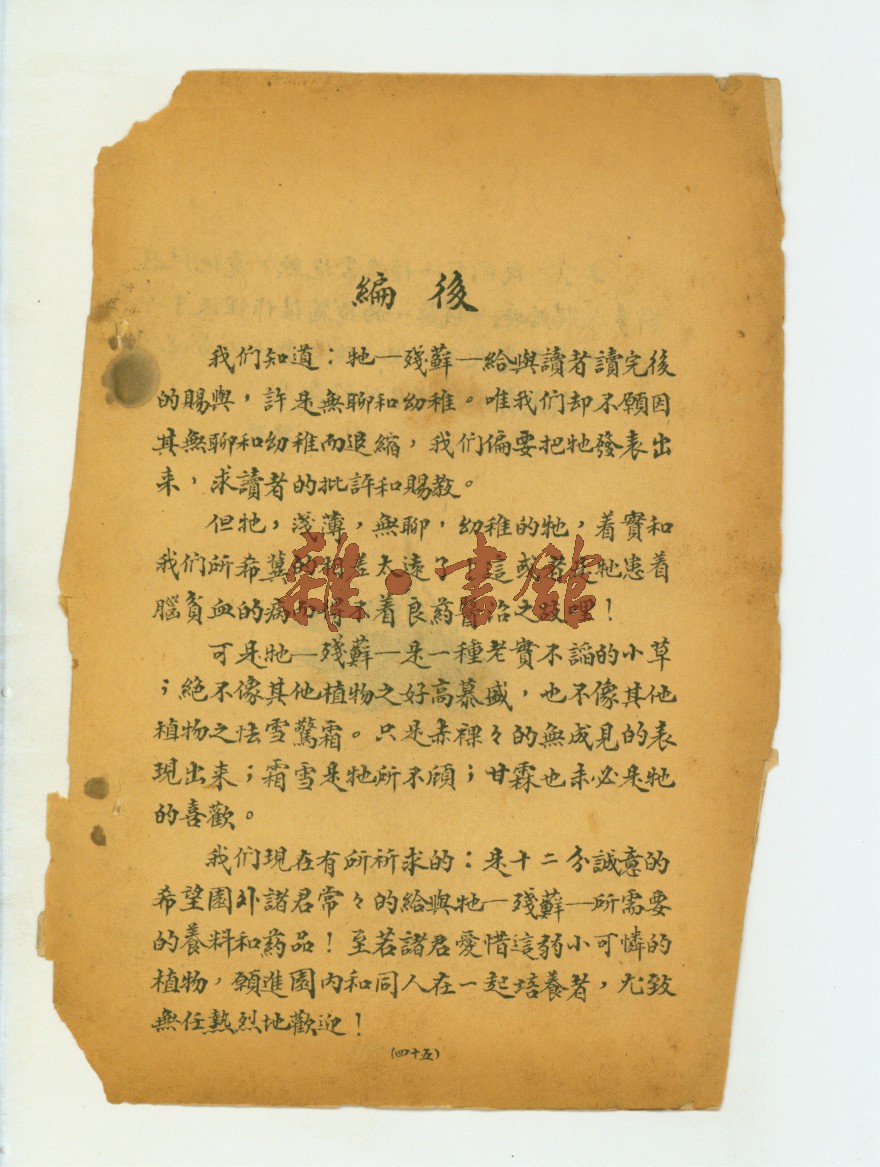 編後
我们知道：牠—殘蘚—給與讀者讀完後
的賜與，許是無聊和幼稚。唯我们却不願因
其無聊和幼稚而退縮，我们偏要把牠發表出
来，求讀者的批評和賜教。
但牠，淺薄，無聊，幼稚的牠，着實和
我们所希冀的相差太遠了！這或者是牠患着
腦貧血的病而得不着良药醫治之故哩！
可是牠—殘蘚—是一種老實不謟的小草
；絕不像其他植物之好高慕盛，也不像其他
植物之怯雪驚霜。只是赤裸々的無成見的表
現出来；霜雪是牠所不頋；甘霖也未必是牠
的喜歡。
我们現在有所祈求的：是十二分誠意的
希望園外諸君常々的給與牠—殘蘚—所需要
的養料和药品！至若諸君愛惜這弱小可憐的
植物，願進園内和同人在一起培養者，尤致
無任熱烈地歡迎！
(四十五)
雜·書館